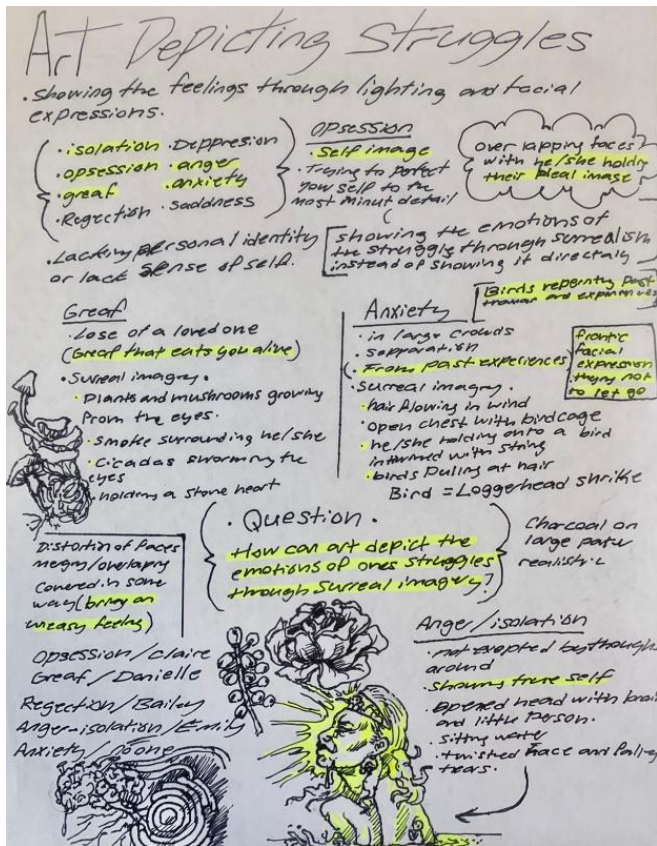 Art Depicting Struggles
• Showing the feelings through lighting and facial
expressions.
• isolation • Deppresion
• opsession • anger
• greaf • anxiety
• Regection • saddness
• Lacking personal identity
or lack sense of self.
opsession
• Self image
• Trying to perfect
your self to the
most minut detail
over lapping faces
with he/she holding
their ideal image
showing the emotions of
the struggle through surrealism
instead of showing it directaly
Birds
past
and
Greaf
• Lose of a loved one
(Greaf that eats you alive)
• Surreal imagry.
• Plants and mushrooms growing
from the eyes.
• Smoke surrounding he/she
• Cicadas swarming the
eyes
• holding a stone heart
Anxiety
• in large crowds
• sepparation
• From past experiences
• Surreal imagry.
• hair flowing in wind
• open chest with birdcage
• he/she holding onto a bird
with string
• birds Puling at hair
Bird = Loggerhead shrike
frantic
facial
expression
trying not
to let go
• Question •
How can art depict the
emotions of ones struggles
through Surreal imagery?
Charcoal on
large paper
realistic
Distortion of faces
merging/overlaping
Covered in some
way (bring an
uneasy feeling)
Opsession/Claire
Greaf/Danielle
Regection/Bailey
Anger-isolation/Emily
Anxiety/
Anger/isolation
• not by
around
• Showing true self
• Opened head with brain
and little Person.
• sitting water
• twisted face and
tears.